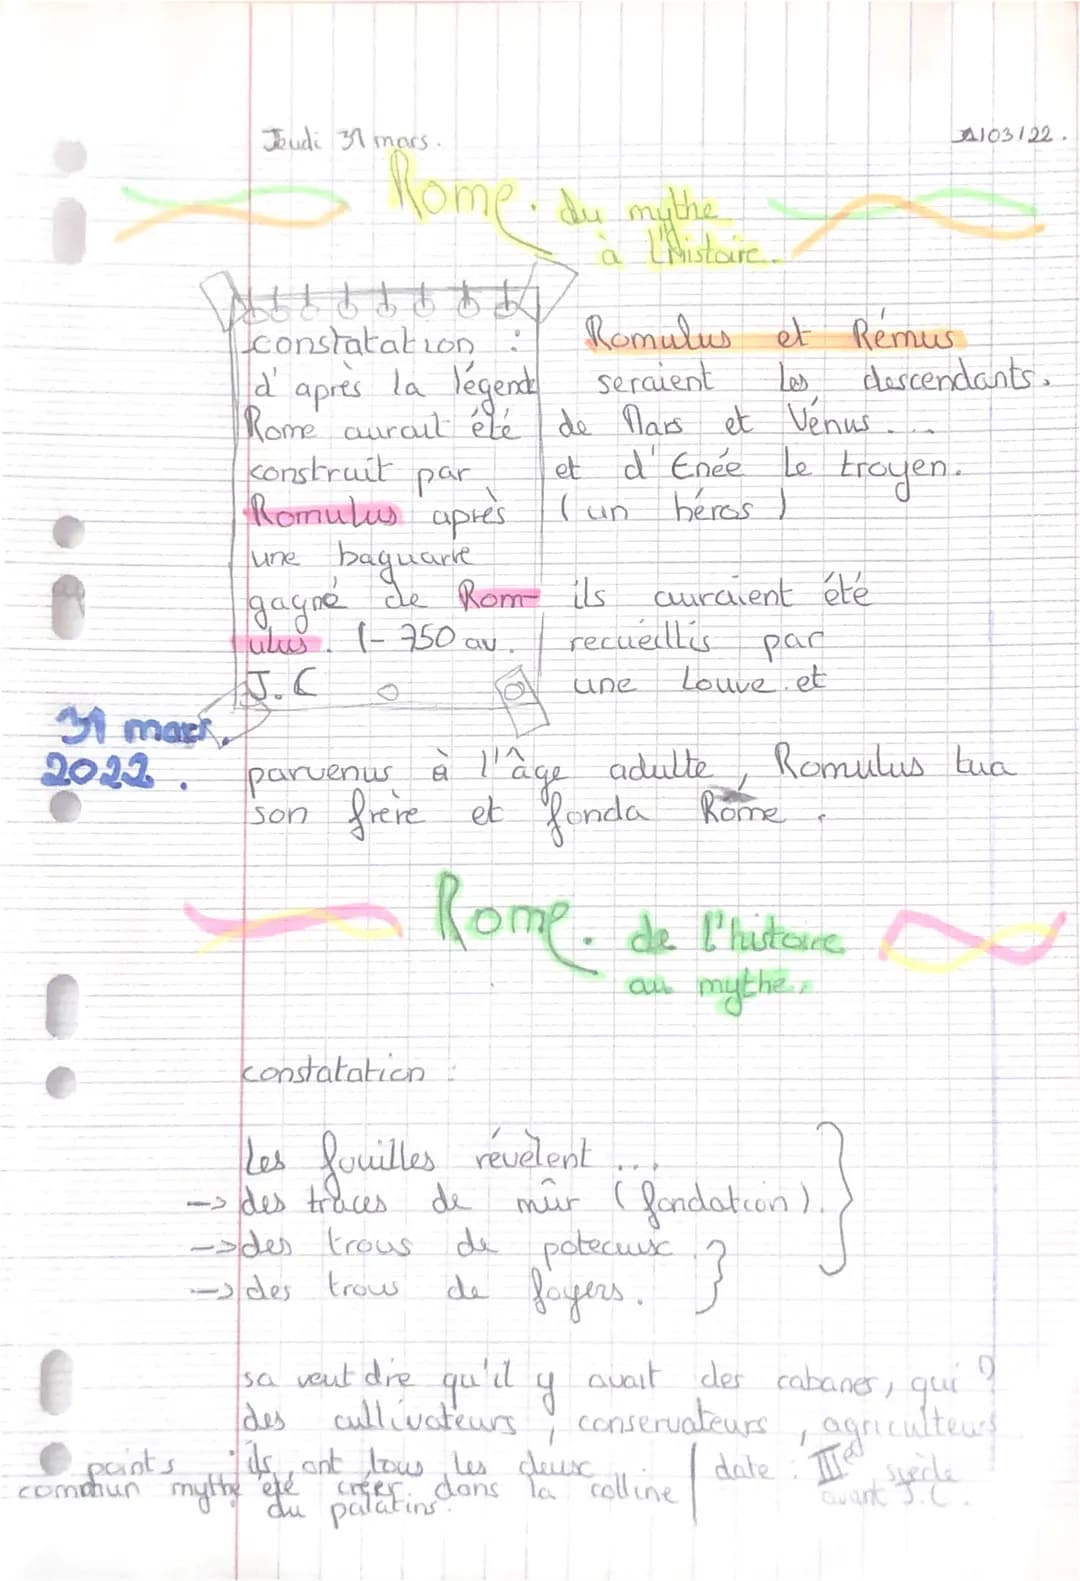 Jeudi 31 mars.
31/03/22.
Rome. du mythe
à l'Histoire..
constatation :
d'après la légende
Rome aurait été
construit par
Romulus après
une baguarre
gagné de Rom-
ulus. (-750 av.
J.C
Romulus et Rémus
seraient les descendants.
de Mars et Vénus...
et d'Enée le troyen.
(un héros)
ils auraient été
recueillis par
une Louve. et
31 mars.
2022.
parvenus à l'âge adulte, Romulus tua
son frère et fonda Rome.
Rome. de l'histoire
au mythe.
constatation :
Les fouilles révèlent ...
-> des traces de mûr (fondation).
-> des trous de poteaux.
-> des trous de foyers.
sa veut dire qu'il y avait des cabanes, qui ?
des cultivateurs, conservateurs, agriculteurs
points : ils ont tous les deux
commun mythe été créer dans la colline
du palatins.
date : IIIe siècle
avant J.C.